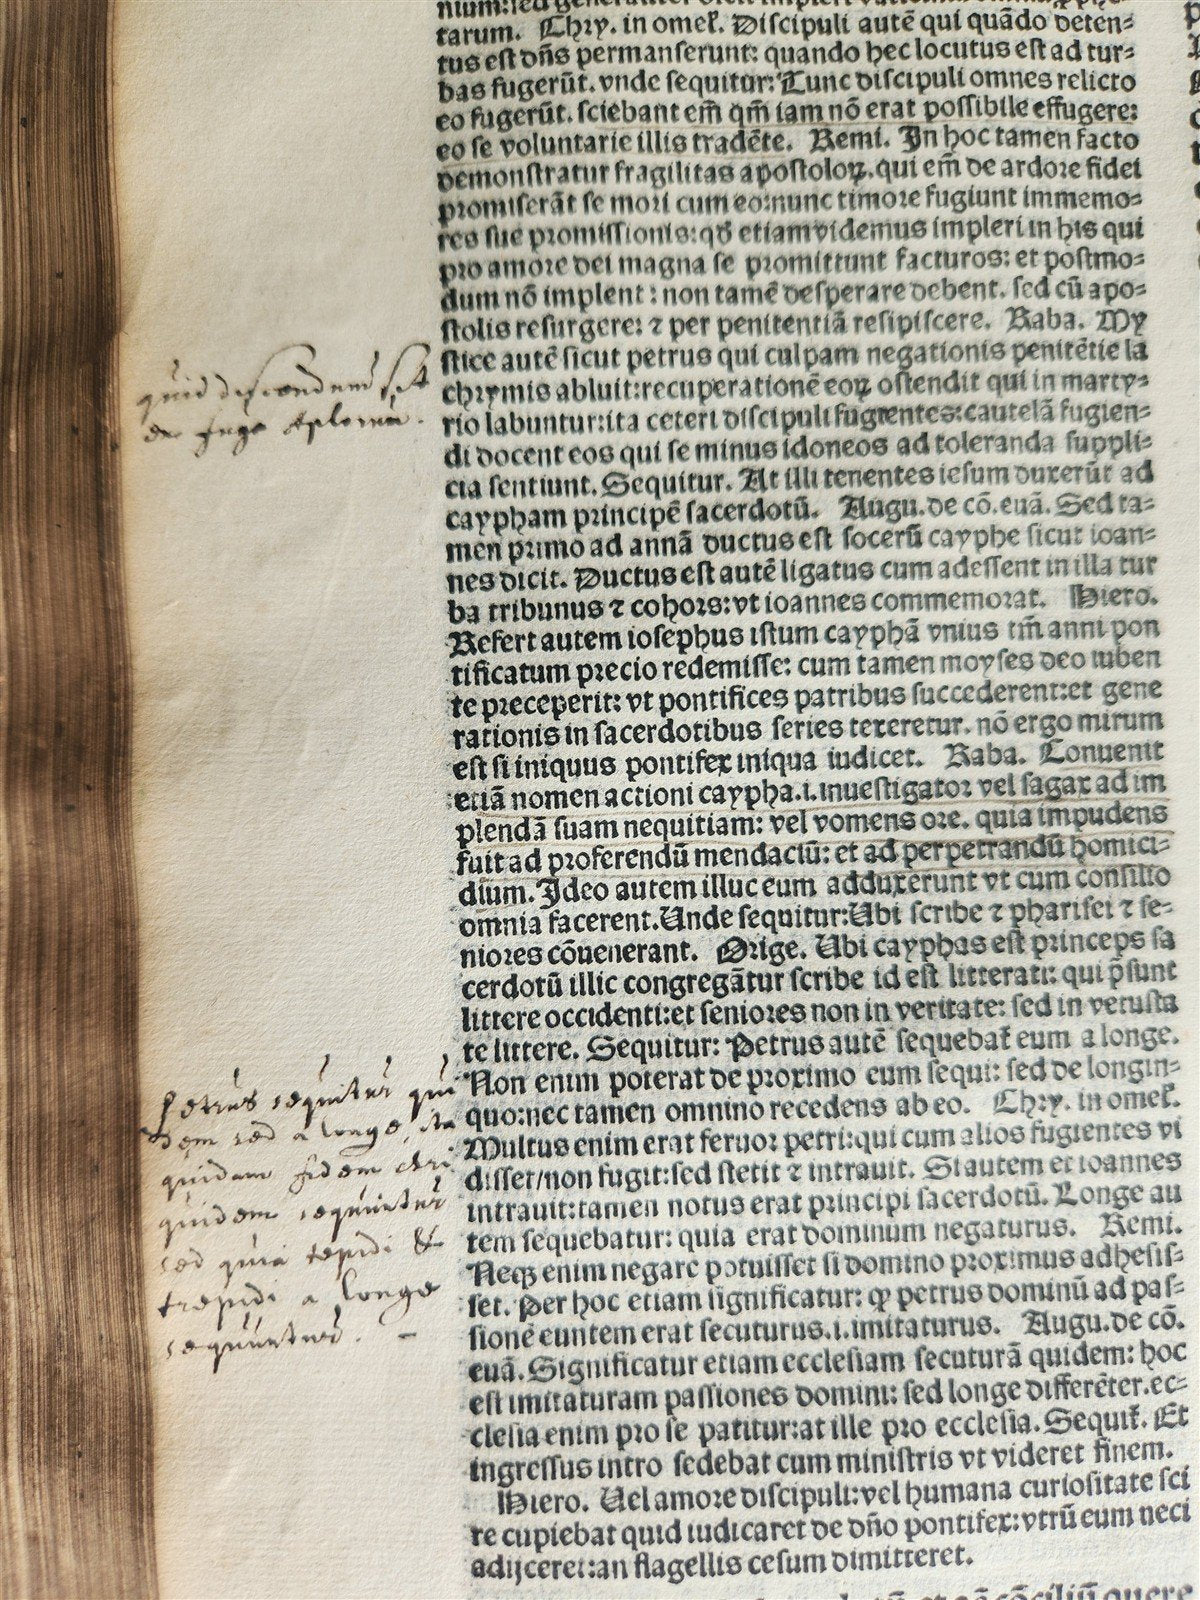 tarum. Chry. in omel̃. Discipuli autẽ qui quãdo deten-
tus est dñs permanserunt: quando hec locutus est ad tur-
bas fugerũt. vnde sequitur: Tunc discipuli omnes relicto
eo fugerũt. sciebant em̃ qm̃ iam nõ erat possibile effugere:
eo se voluntarie illis tradẽte. Remi. In hoc tamen facto
demonstratur fragilitas apostoloꝝ. qui em̃ de ardore fidei
promiserãt se mori cum eo: nunc timore fugiunt immemo-
res sue promissionis: qđ etiam videmus impleri in his qui
pro amore dei magna se promittunt facturos: et postmo-
dum nõ implent: non tamẽ desperare debent. sed cũ apo-
stolis resurgere: ⁊ per penitentiã resipiscere. Raba. My
stice autẽ sicut petrus qui culpam negationis penitẽtie la
chrymis abluit: recuperationẽ eoꝝ ostendit qui in marty-
rio labuntur: ita ceteri discipuli fugientes: cautelã fugien-
di docent eos qui se minus idoneos ad toleranda suppli-
cia sentiunt. Sequitur. At illi tenentes iesum duxerũt ad
caypham principẽ sacerdotũ. Augu. de cõ. euã. Sed ta-
men primo ad annã ductus est socerũ cayphe sicut ioan-
nes dicit. Ductus est autẽ ligatus cum adessent in illa tur
ba tribunus ⁊ cohors: vt ioannes commemorat. Hiero.
Refert autem iosephus istum cayphã vnius tm̃ anni pon
tificatum precio redemisse: cum tamen moyses deo iuben
te preceperit: vt pontifices patribus succederent: et gene
rationis in sacerdotibus series texeretur. nõ ergo mirum
est si iniquus pontifex iniqua iudicet. Raba. Conuenit
etiã nomen actioni caypha .i. inuestigator vel sagax ad im
plendã suam nequitiam: vel vomens ore. quia impudens
fuit ad proferendũ mendaciũ: et ad perpetrandũ homici-
dium. Ideo autem illuc eum adduxerunt vt cum consilio
omnia facerent. Unde sequitur: Ubi scribe ⁊ pharisei ⁊ se-
niores cõuenerant. Orige. Ubi cayphas est princeps sa
cerdotũ illic congregãtur scribe id est litterati: qui p̃sunt
littere occidenti: et seniores non in veritate: sed in vetusta
te littere. Sequitur: Petrus autẽ sequebat̃ eum a longe.
Non enim poterat de proximo eum sequi: sed de longin-
quo: nec tamen omnino recedens ab eo. Chry. in omel̃.
Multus enim erat feruor petri: qui cum alios fugientes vi
disset/non fugit: sed stetit ⁊ intrauit. Si autem et ioannes
intrauit: tamen notus erat principi sacerdotũ. Longe au
tem sequebatur: quia erat dominum negaturus. Remi.
Neqꝫ enim negare potuisset si domino proximus adhesis-
set. Per hoc etiam significatur: ꝙ petrus dominũ ad pas-
sionẽ euntem erat secuturus .i. imitaturus. Augu. de cõ.
euã. Significatur etiam ecclesiam secuturã quidem: hoc
est imitaturam passiones domini: sed longe differẽter. ec-
clesia enim pro se patitur: at ille pro ecclesia. Sequit̃. Et
ingressus intro sedebat cum ministris vt videret finem.
Hiero. Uel amore discipuli: vel humana curiositate sci
re cupiebat quid iudicaret de dño pontifex: vtrũ eum neci
adijceret: an flagellis cesum dimitteret.
quid
de fuga Aplorum.
Petrus sequitur qui
dem sed a longe, ita
quidam fidem
quidem sequuntur
sed quia tepidi &
trepidi a longe
sequuntur. -